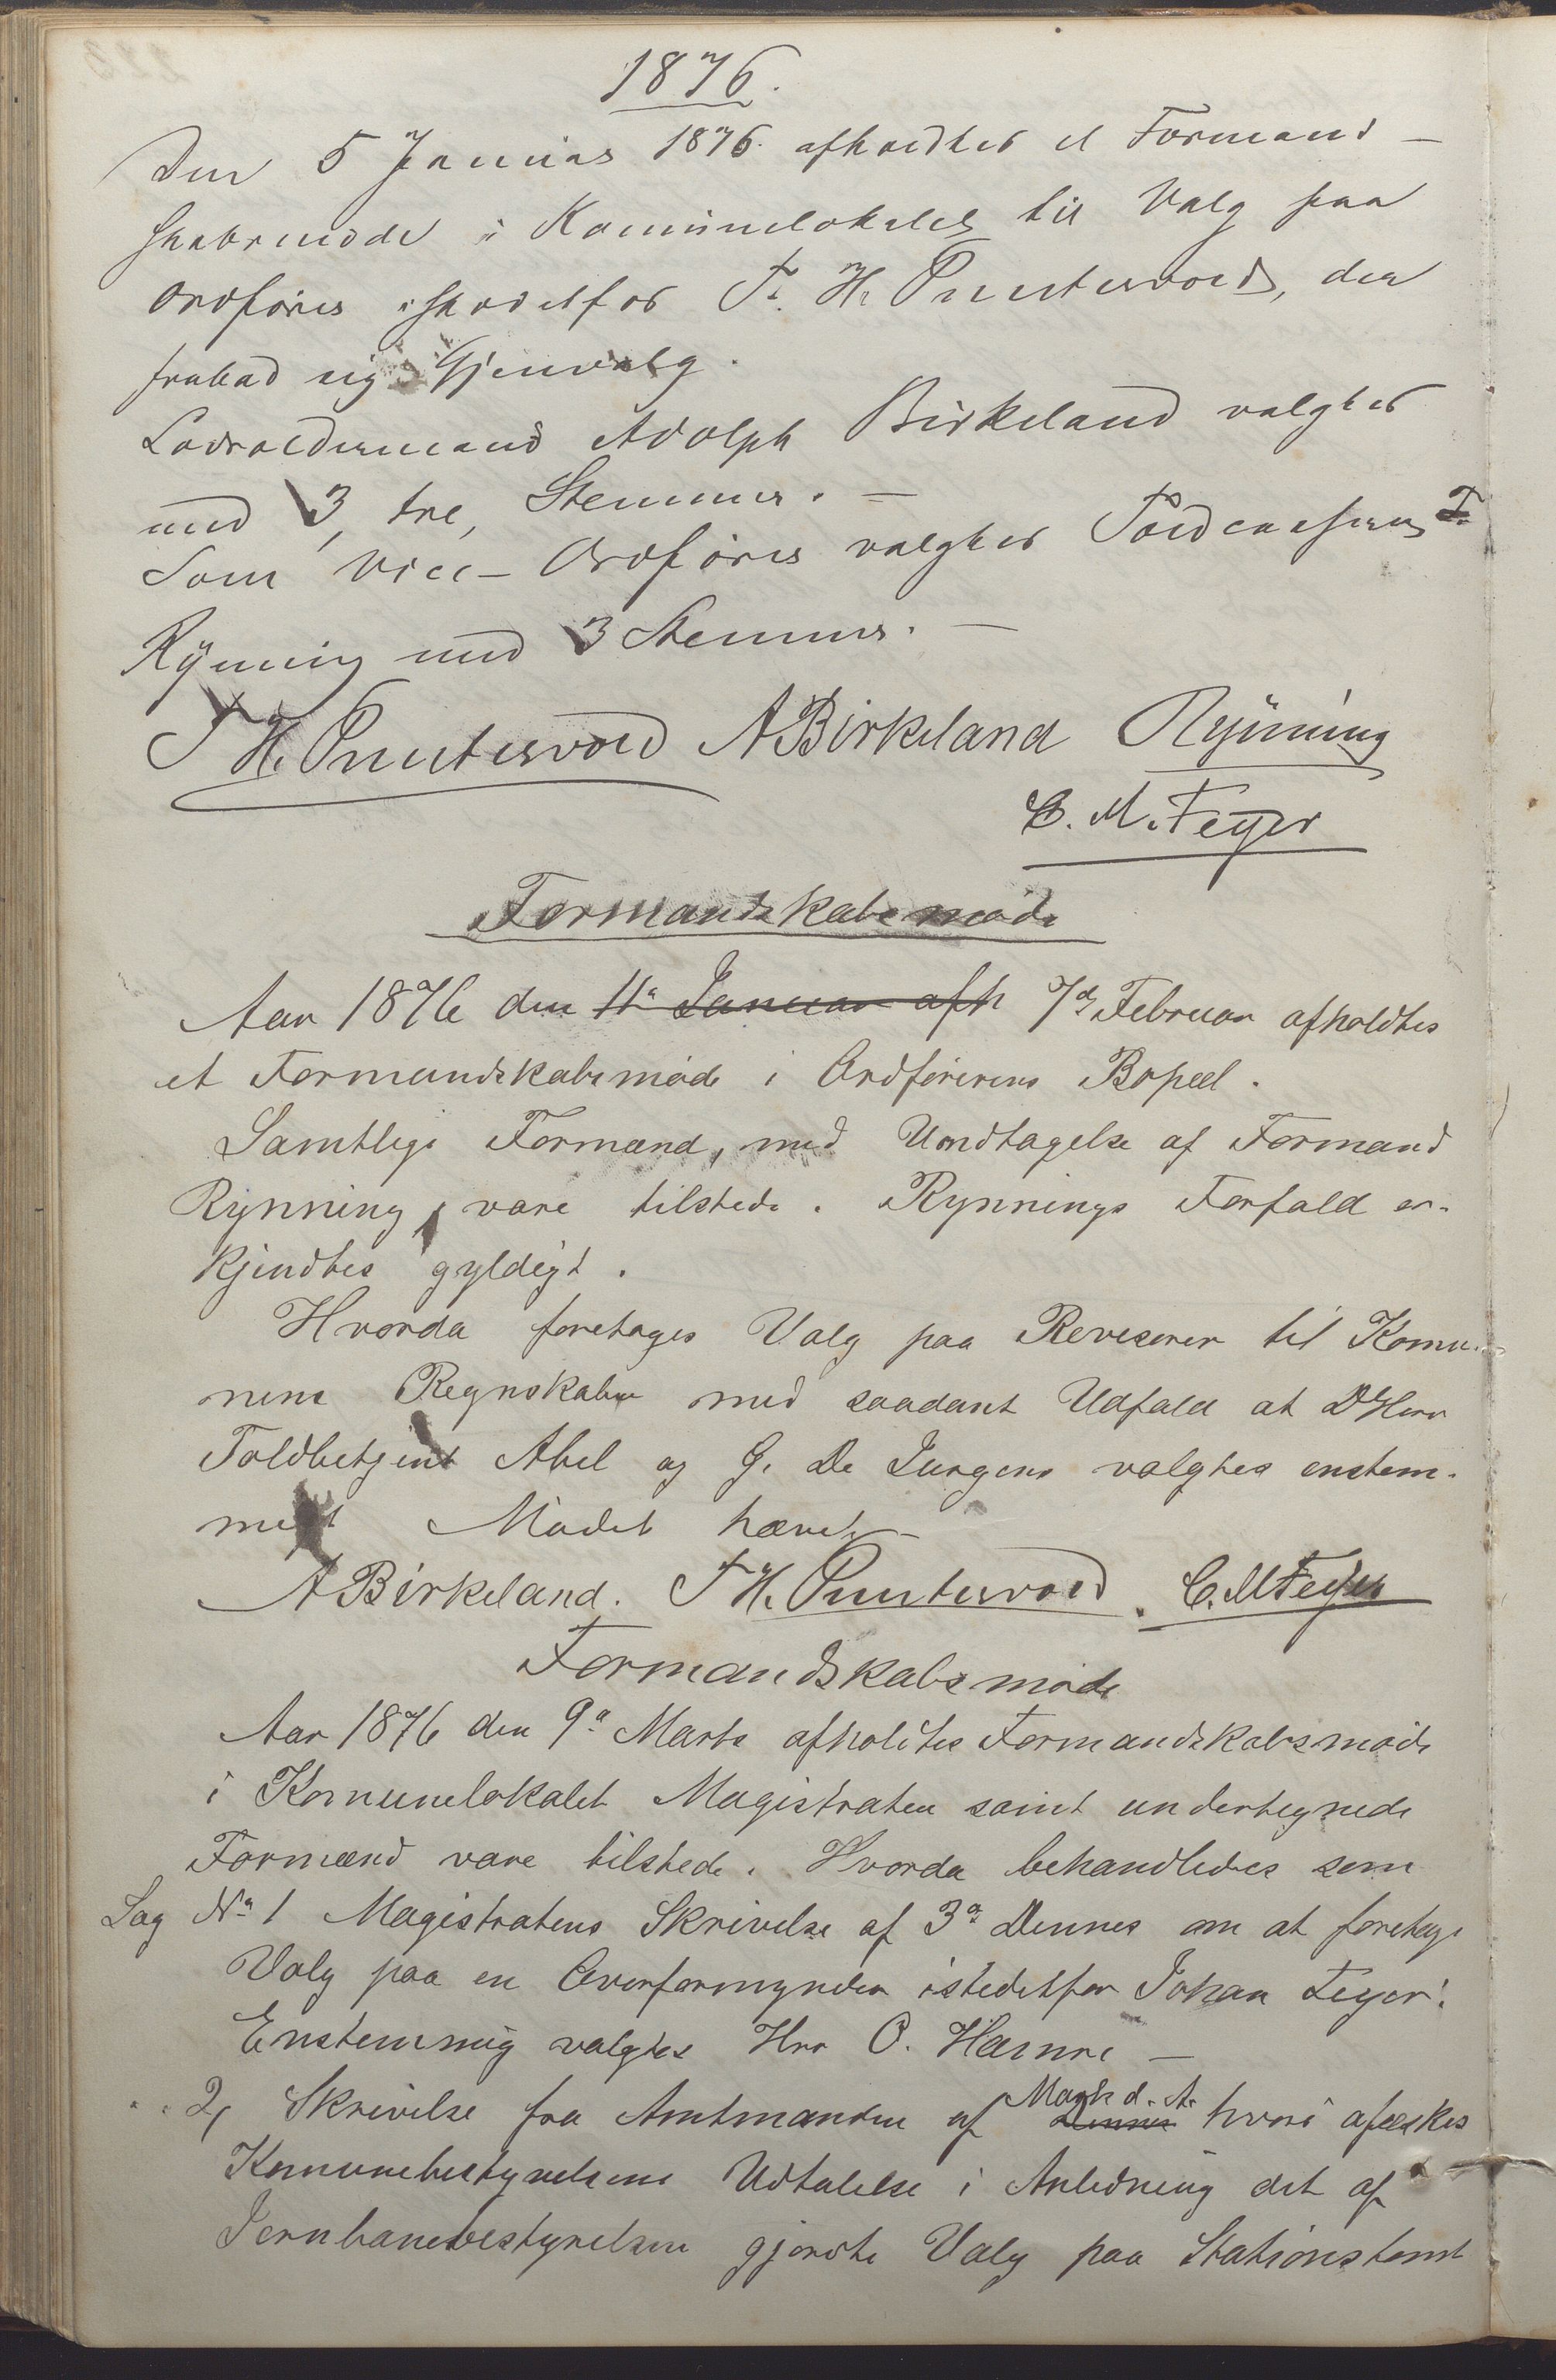 1876.
Den 5 Januar 1876. afholdtes et Formand-
skabsmøde i Kommunelokalet til Valg paa
Ordfører istedetfor T. H. Puntervold, der
frabad sig Gjenvalg.
Lodsoldermand Adolph Birkeland valgtes
med 3, tre, Stemmer. -
Som Vice-Ordfører valgtes Toldcasserer
Rynning med 3 Stemmer. -
T H. Puntervold ABirkeland Rynning
C. M. Feyer
Formandskabsmøde
Aar 1876 den 11te Januar afh 7de Februar afholdtes
et Formandskabsmøde i Ordførerens Bopæl.
Samtlige Formænd, med Undtagelse af Formand
Rynning, vare tilstede. Rynnings Forfald er-
kjendtes gyldigt.
Hvorda foretoges Valg paa Revisorer til Komu-
nens Regnskaber med saadant Udfald at DHerr
Toldbetjent Abel og G. De Jurgens valgtes enstem-
migt Mødet hævet. -
ABirkeland. T H. Puntervold. C. MFeyer
Formandskabsmøde
Aar 1876 den 9de Marts afholdtes Formandskabsmøde
i Komunelokalet Magistraten samt undertegnede
Formænd vare tilstede. Hvorda behandledes som
Sag No 1 Magistratens Skrivelse af 3de Dennes om at foretage
Valg paa en Overformynder istedetfor Johan Feyer.
Enstemmig valgtes Hrr O.
" " 2, Skrivelse fra Amtmanden af Dennes Marts d. A. hvori afæskes
Komunebestyrelsens Udtalelse i Anledning det af
Jernbanebestyrelsen gjordte Valg paa Stationstomt